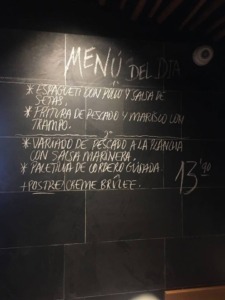 MENÚ DEL DIA
1º
* ESPAGUETI CON POLLO Y SALSA DE
SETAS.
* FRITURA DE PESCADO Y MARISCO CON
TRAMPO.
2º
* VARIADO DE PESCADO A LA PLANCHA
CON SALSA MARINERA.
* PALETILLA DE CORDERO GUISADA.
+ POSTRE: CREME BRÛLEE.
13'90